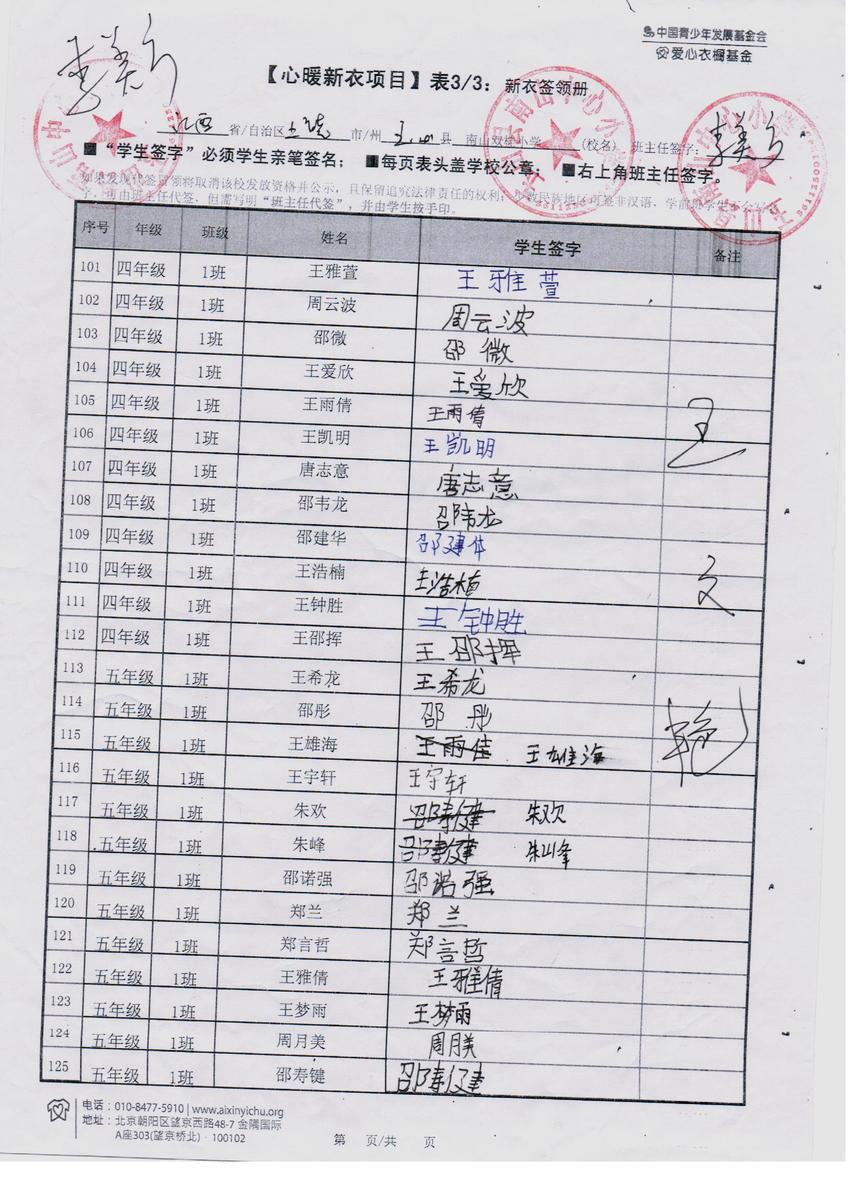 中国青少年发展基金会
爱心衣橱基金
李美文
【心暖新衣项目】表3/3：新衣签领册
江西 省/自治区 上饶 市/州 玉山 县 南山双桥小学 (校名) 班主任签字：李美文
■“学生签字”必须学生亲笔签名；■每页表头盖学校公章；■右上角班主任签字。
如果发现代签冒领将取消该校发放资格并公示，且保留追究法律责任的权利；少数民族地区可签非汉语，学前班学生不会写
字，可由班主任代签，但需写明“班主任代签”，并由学生按手印。
序号 年级 班级 姓名 学生签字 备注
101 四年级 1班 王雅萱 王雅萱
102 四年级 1班 周云波 周云波
103 四年级 1班 邵微 邵微
104 四年级 1班 王爱欣 王爱欣
105 四年级 1班 王雨倩 王雨倩
106 四年级 1班 王凯明 王凯明 王
107 四年级 1班 唐志意 唐志意
108 四年级 1班 邵韦龙 邵韦龙
109 四年级 1班 邵建华 邵建华
110 四年级 1班 王浩楠 王浩楠 文
111 四年级 1班 王钟胜 王钟胜
112 四年级 1班 王邵挥 王邵挥
113 五年级 1班 王希龙 王希龙
114 五年级 1班 邵彤 邵彤
115 五年级 1班 王雄海 王雨倩 王雄海 艳
116 五年级 1班 王宇轩 王宇轩
117 五年级 1班 朱欢 邵寿键 朱欢
118 五年级 1班 朱峰 邵寿键 朱峰
119 五年级 1班 邵诺强 邵诺强
120 五年级 1班 郑兰 郑兰
121 五年级 1班 郑言哲 郑言哲
122 五年级 1班 王雅倩 王雅倩
123 五年级 1班 王梦雨 王梦雨
124 五年级 1班 周月美 周月美
125 五年级 1班 邵寿键 邵寿键
电话：010-8477-5910 | www.aixinyichu.org
地址：北京朝阳区望京西路48-7 金隅国际
A座303(望京桥北)·100102
第 页/共 页